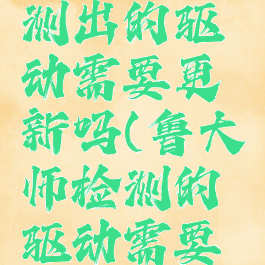 测出的驱
动需要更
新吗(鲁大
师检测的
驱动需要